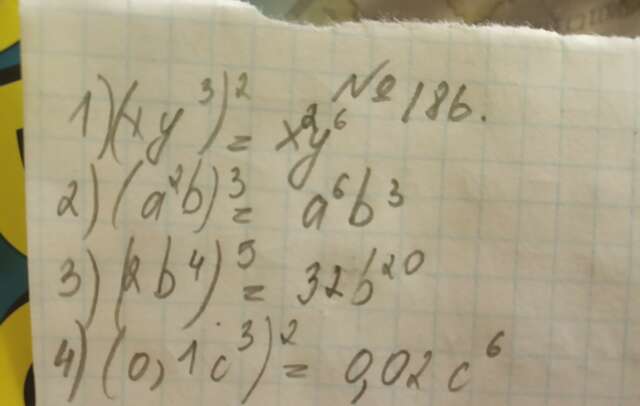 № 186.
1) (xy³)² = x²y⁶
2) (a²b)³ = a⁶b³
3) (2b⁴)⁵ = 32b²⁰
4) (0,1c³)² = 0,02c⁶